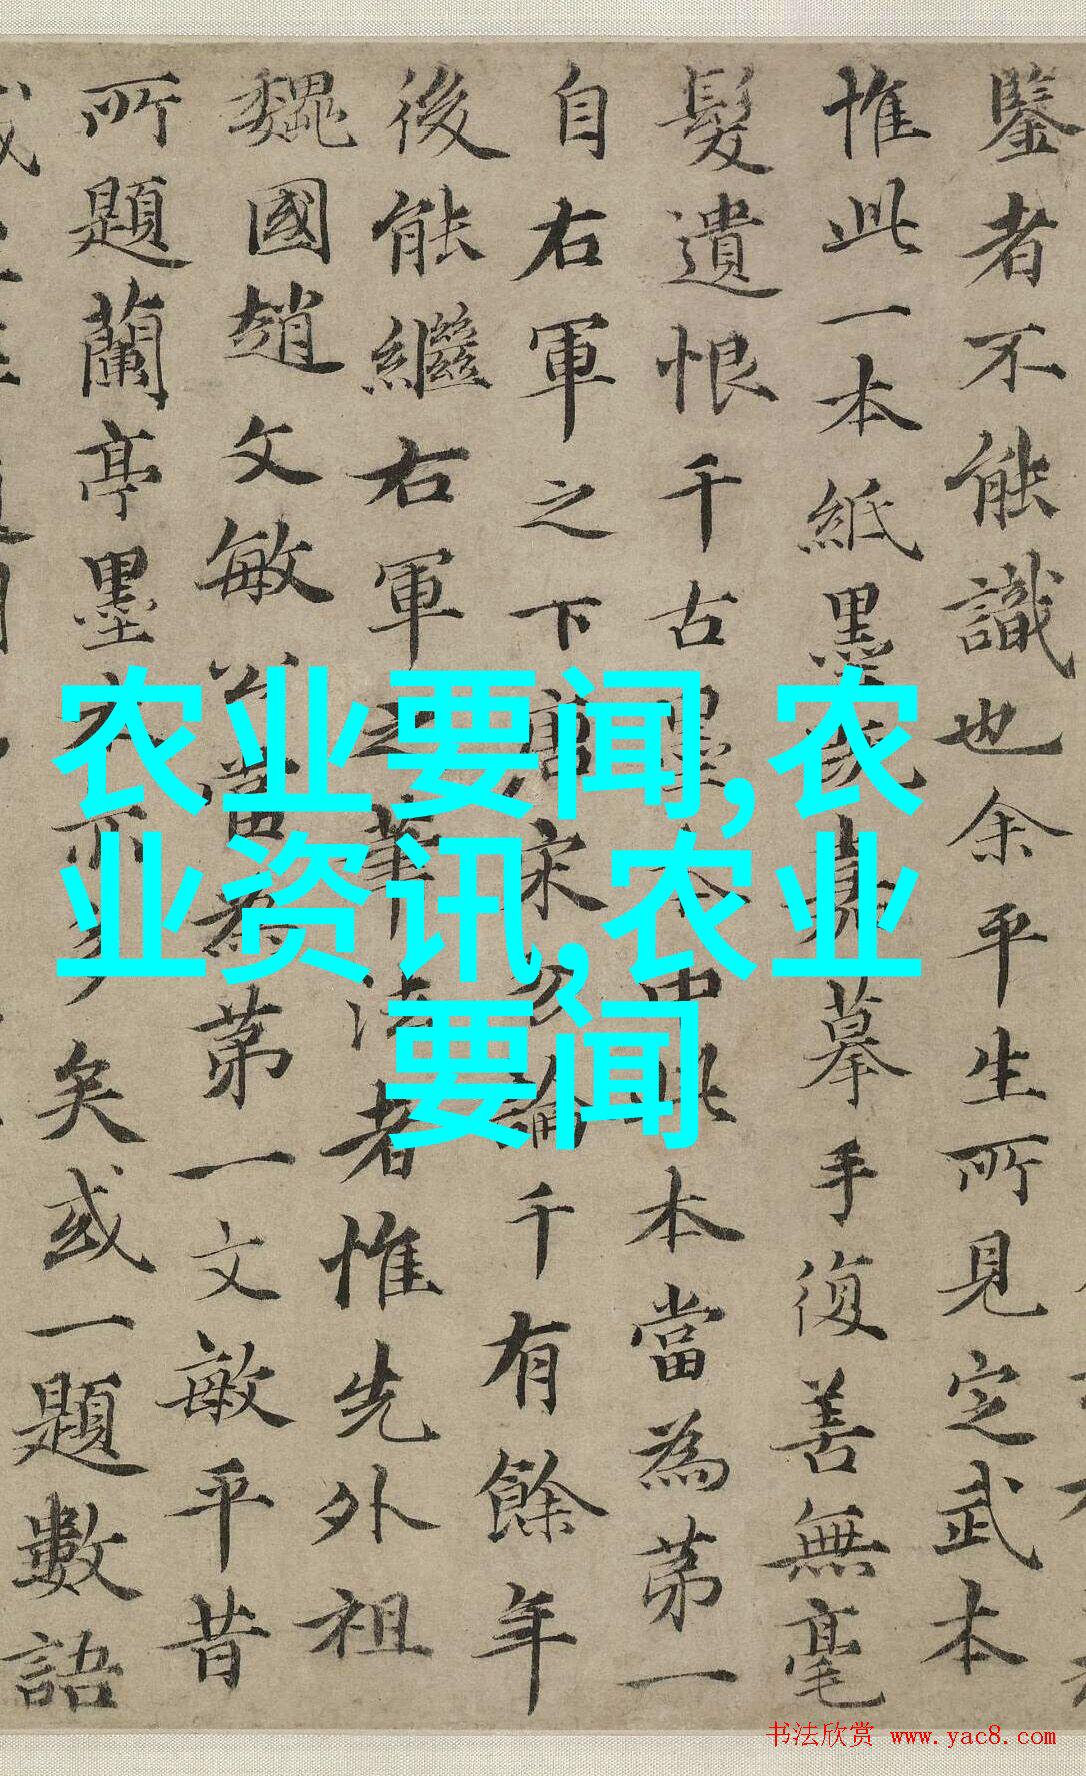 鑒者不能識也余平生所見定武本
惟此一本紙墨既嘉摹手復善無毫
髮遺恨千古墨本中此本當為苐一
自右軍之下唐宋勿論千有餘年
後能繼右軍之筆法者惟先外祖
魏國趙文敏公當為苐一文敏平昔
所題蘭亭墨本亦多矣或一題數語
农业要闻,农
业资讯,农业
要闻
书法欣赏 www.yac8.com